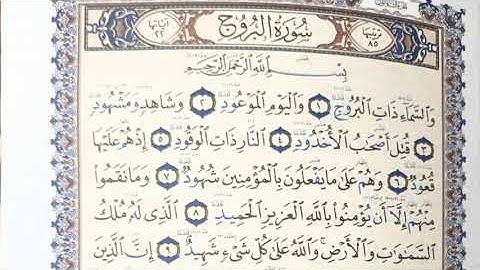 ترتيبها ٨٥ سُورَةُ البُرُوجِ آياتها ٢٢
بِسْمِ اللَّهِ الرَّحْمَٰنِ الرَّحِيمِ
وَالسَّمَاءِ ذَاتِ الْبُرُوجِ ١ وَالْيَوْمِ الْمَوْعُودِ ٢ وَشَاهِدٍ وَمَشْهُودٍ
٣ قُتِلَ أَصْحَابُ الْأُخْدُودِ ٤ النَّارِ ذَاتِ الْوَقُودِ ٥ إِذْ هُمْ عَلَيْهَا
قُعُودٌ ٦ وَهُمْ عَلَىٰ مَا يَفْعَلُونَ بِالْمُؤْمِنِينَ شُهُودٌ ٧ وَمَا نَقَمُوا
مِنْهُمْ إِلَّا أَن يُؤْمِنُوا بِاللَّهِ الْعَزِيزِ الْحَمِيدِ ٨ الَّذِي لَهُ مُلْكُ
السَّمَاوَاتِ وَالْأَرْضِ وَاللَّهُ عَلَىٰ كُلِّ شَيْءٍ شَهِيدٌ ٩ إِنَّ الَّذِينَ